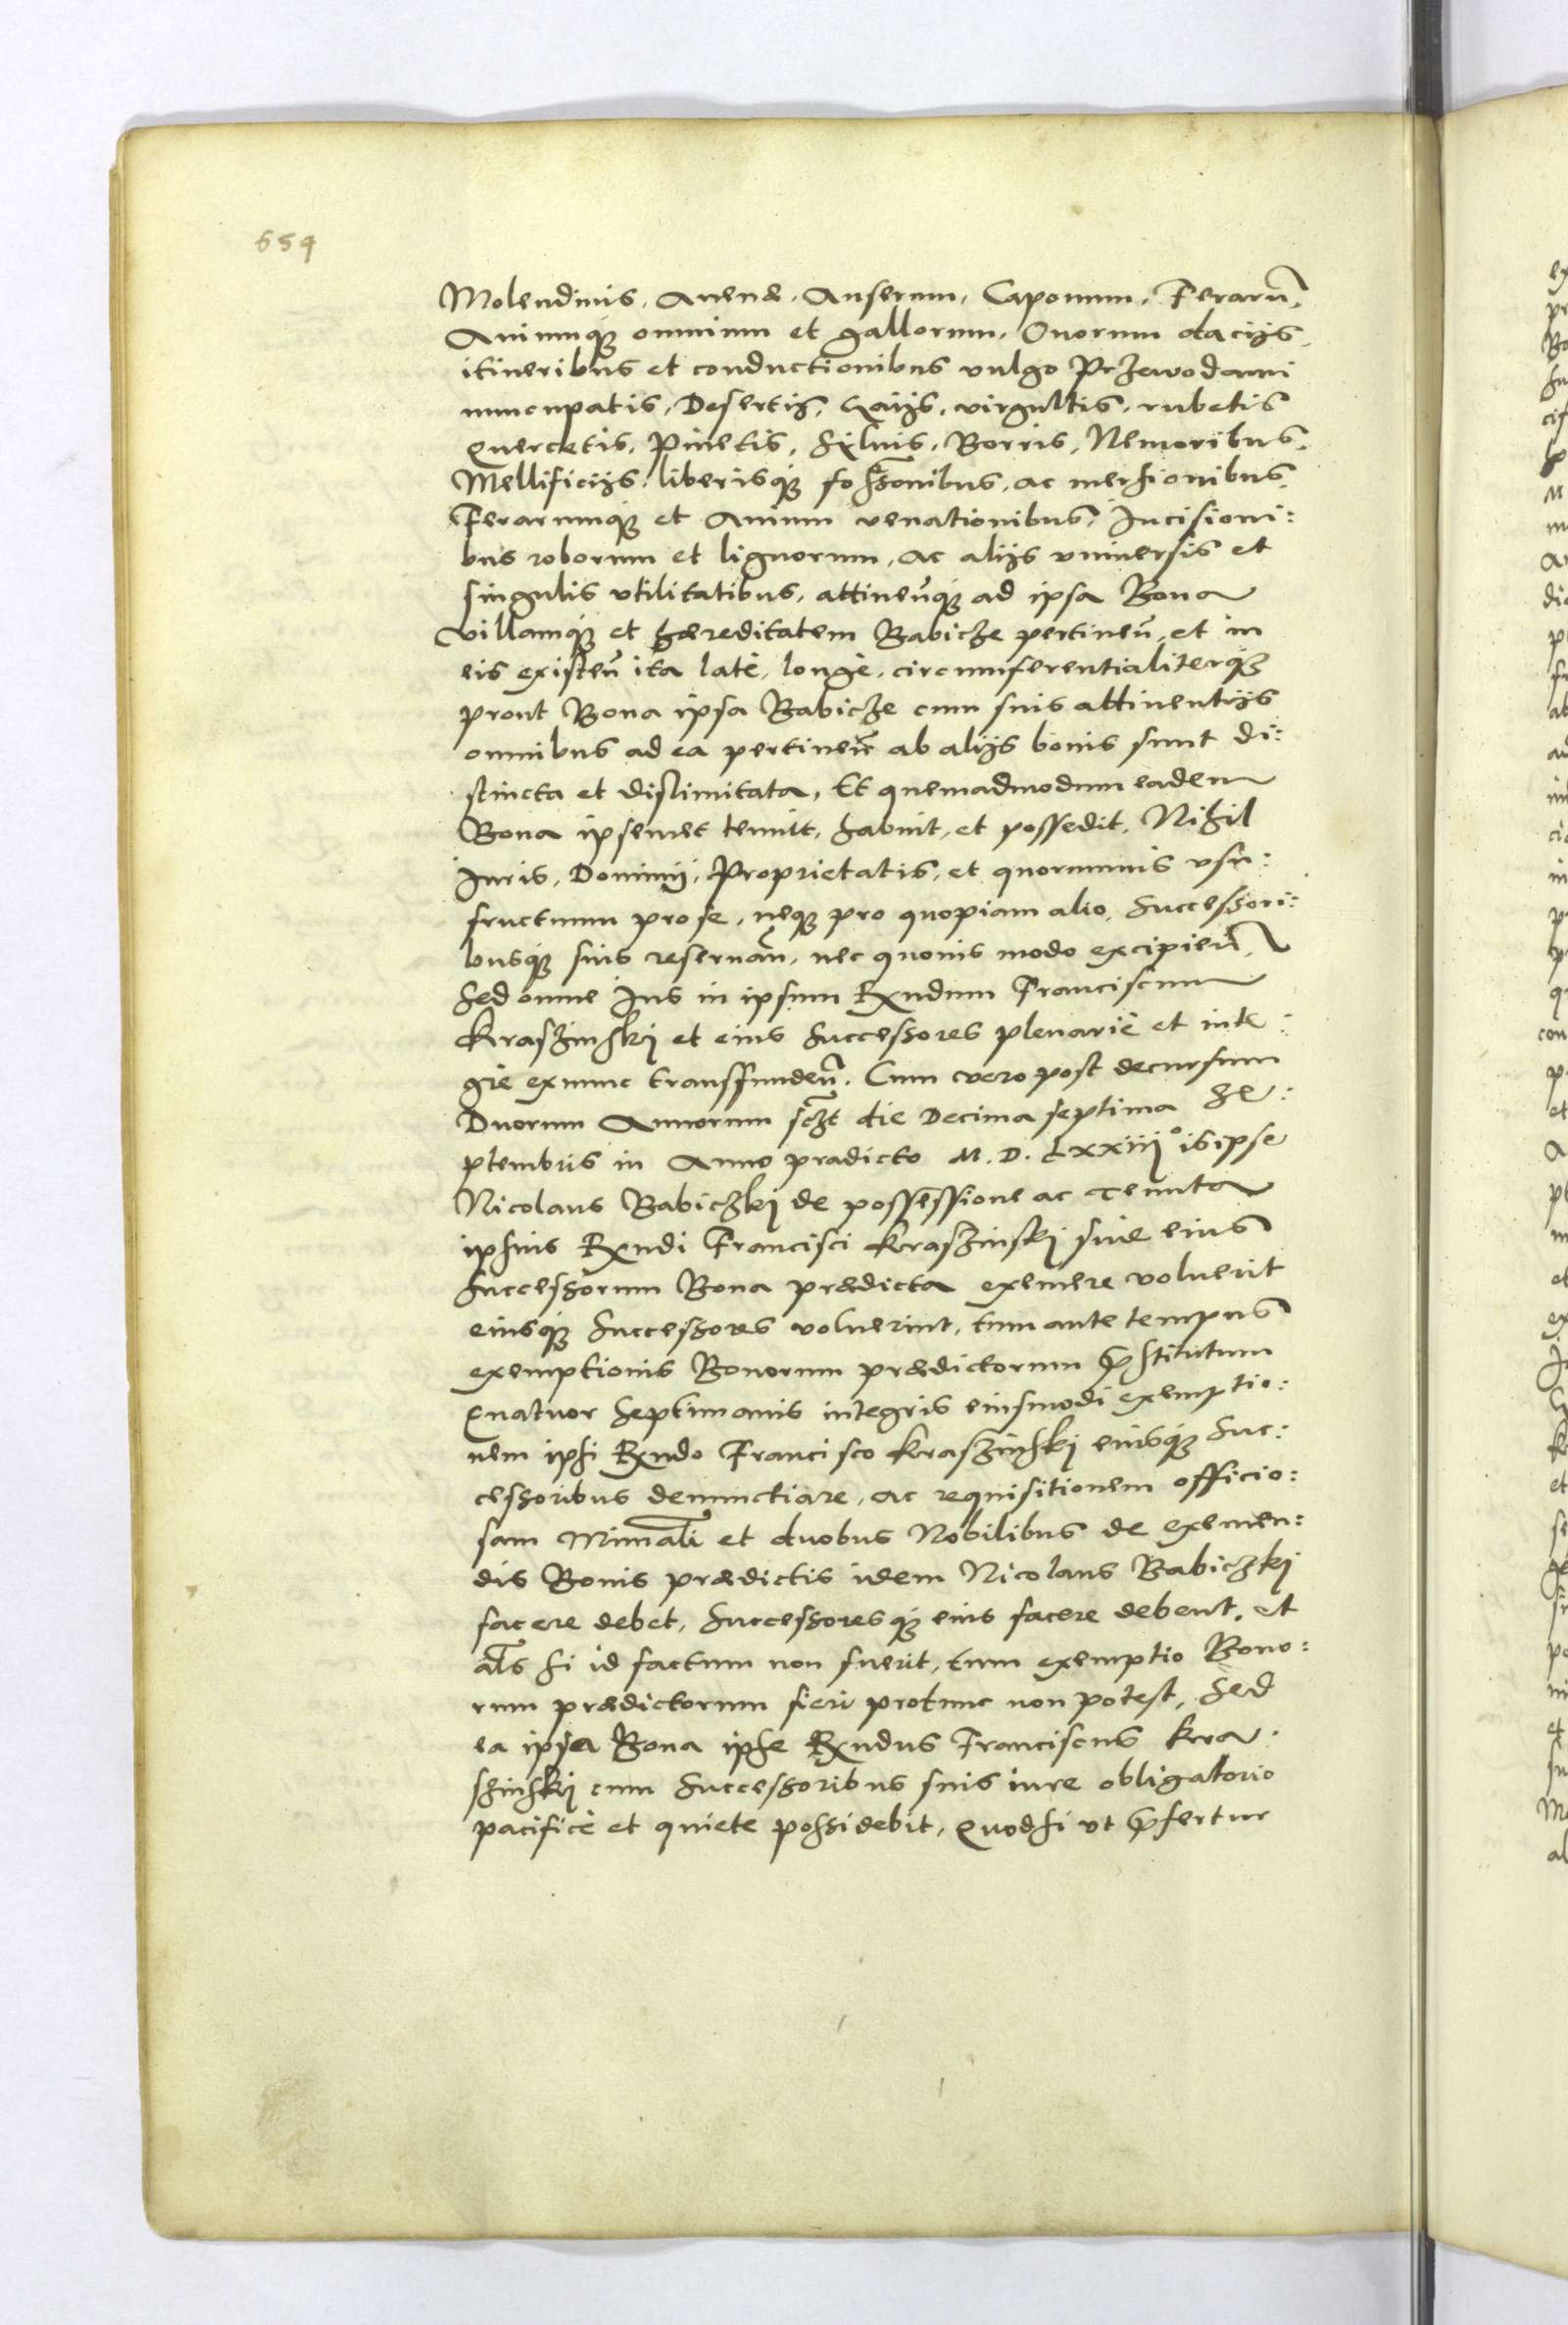 659
Molendinis, Auenæ, Anserum, Caponum, Ferarũ,
Auiumq́ꝫ omnium et gallorum, Ouorum dacijs,
itineribus et conductionibus vulgo Przewodami
nuncupatis, Desertis, Gaijs, virgultis, rubetis
Quercetis, Pinetis, Syluis, Borris, Nemoribus,
Mellificijs, liberisq́ꝫ foſsionibus, ac mersionibus,
Ferarumq́ꝫ et Auium venationibus, Incisioni:
bus roborum et lignorum, ac alijs vniuersis et
singulis vtilitatibus, attineñq́ꝫ ad ipsa Bona
villamq́ꝫ et hæreditatem Babicze pertineñ, et in
eis existeñ ita latè, longè, circumferentialiterq́ꝫ
prout Bona ipsa Babicze cum suis attinentijs
omnibus ad ea pertineñ ab alijs bonis sunt di:
stincta et dislimitata, Et quemadmodum eadem
Bona ipsemet tenuit, habuit, et possedit, Nihil
Iuris, Dominij, Proprietatis, et quorumuis vsu:
fructuum pro se, neqꝫ pro quopiam alio, Successori:
busq́ꝫ suis reseruañ, nec quouis modo excipieñ,
Sed omne Ius in ipsum Rṇdum Franciscum
Kraszinskij et eius Successores plenariè et inte:
grè exnunc transfundeñ. Cum vero post decursum
Duorum Annorum sczt die Decima septima Se:
ptembris in Anno prædicto M. D. Lxxiiij° is ipse
Nicolaus Babiczkij de possessione ac tenuta
ipsius Rṇdi Francisci Kraszinskij siue eius
Successorum Bona prædicta exemere voluerit
eiusq́ꝫ Successores voluerint, tum ante tempus
exemptionis Bonorum prædictorum p̃stitutum
Quatuor Septimanis integris eiusmodi exemptio:
nem ipsi Rṇdo Francisco Kraszinskij eiusq́ꝫ Suc:
cessoribus denunctiare, ac requisitionem officio:
sam Minꝛ̃ali et duobus Nobilibus de exemen:
dis Bonis prædictis idem Nicolaus Babiczkij
facere debet, Successoresq́ꝫ eius facere debent, et
al̃s si id factum non fuerit, tum exemptio Bono:
rum prædictorum fieri protunc non potest, Sed
ea ipsa Bona ipse Rṇdus Franciscus Kra:
szinskij cum Successoribus suis iure obligatorio
pacificè et quiete possidebit, Quodsi vt p̃fertur